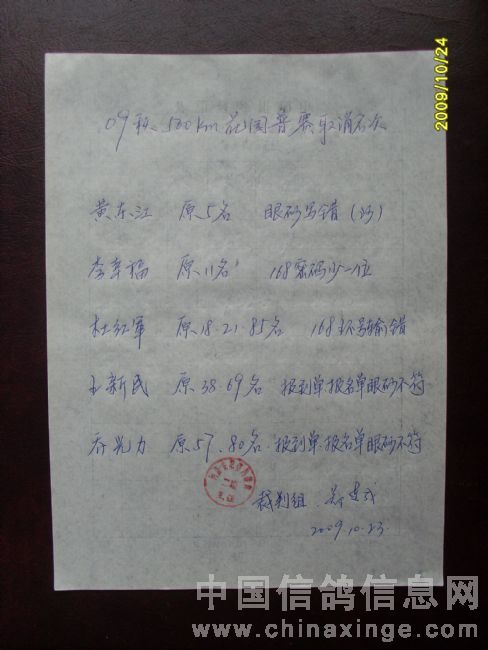 2009/10/24
09秋 500km 花园普赛取消名次
黄东江 原5名 眼砂写错(沙)
李幸福 原11名 168密码少一位
杜红军 原18.21.85名 168环号输错
王新民 原38.69名 报到单.报名单眼砂不符
乔光力 原57.80名.报到单.报名单眼砂不符
裁判组
2009.10.23
中国信鸽信息网
www.chinaxinge.com